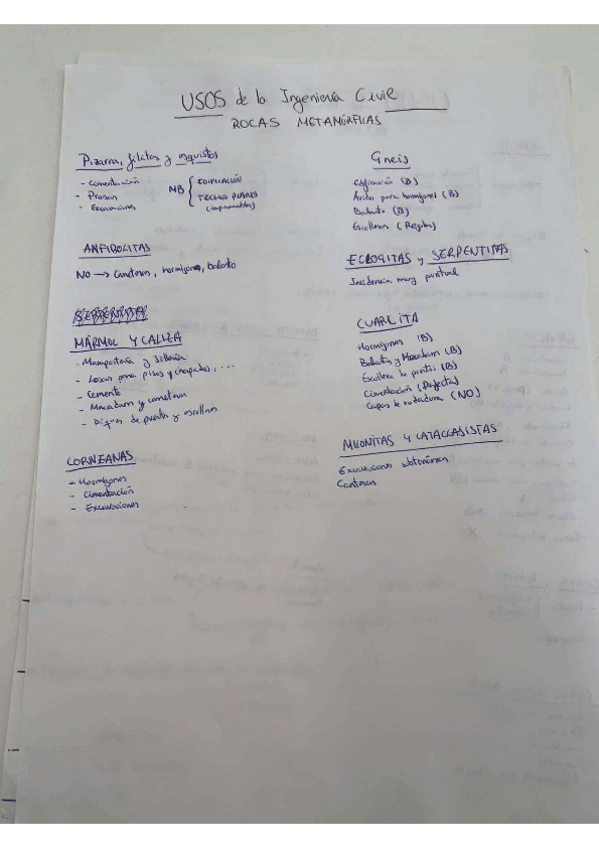 USOS de la Ingeniería Civil
ROCAS METAMÓRFICAS
Pizarra, filitas y esquistos
- Cimentación
- Presas
- Excavaciones
MB { EDIFICACIÓN
TECHOS PLANOS
(impermeables)
ANFIBOLITAS
NO → Canteras, hormigones, balasto
MÁRMOL Y CALIZA
- Mampostería y sillería
- Losas para pisos y chapados, ...
- Cemento
- Macadam y carreteras
- Diques de puerto y escollera
CORNEANAS
- Hormigones
- Cimentación
- Excavaciones
Gneis
Edificación (B)
Áridos para hormigones (B)
Balasto (B)
Escolleras (Regular)
ECLOGITAS y SERPENTITAS
Incidencia muy puntual
CUARCITA
Hormigones (B)
Balasto y Macadam (B)
Escollera de puertos (B)
Cimentación (Perfecta)
Capas de rodadura (NO)
MILONITAS Y CATACLASISTAS
Excavaciones subterráneas
Canteras